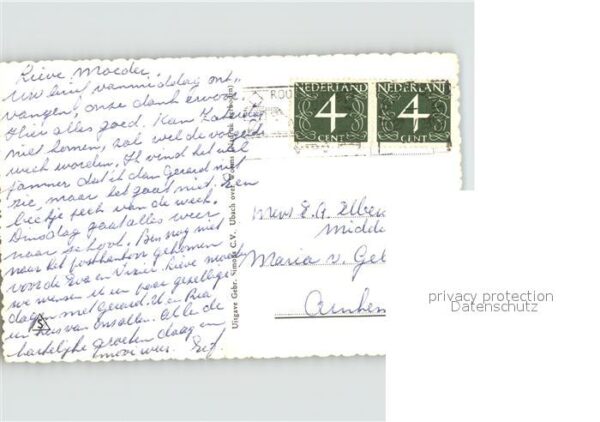 Lieve Moeder.
Uw brief vanmiddag ont-
vangen, onze dank ervoor.
Hier alles goed. Kan Zaterdag
niet komen, zal wel de volgende
week worden. Ik vind het wel
jammer dat ik dan Gerard niet
zie, maar het gaat niet. Een
beetje pech van de week.
Dinsdag gaat alles weer
naar school. Ben nog niet
naar het postkantoor gekomen
voor de en Lieve moeder
we wensen U een paar gezellige
dagen met Gerard. U en Ria
een kus van ons allen. Al de
hartelijke groeten daag en
mooi weer.
Uitgave Gebr. Simons C.V. Ubach over Worms (Nadruk verboden)
ROO
NEDERLAND
4
CENT
NEDERLAND
4
CENT
Mevr E. A.
Midde
Maria v. Gel
Arnhem
privacy protection
Datenschutz